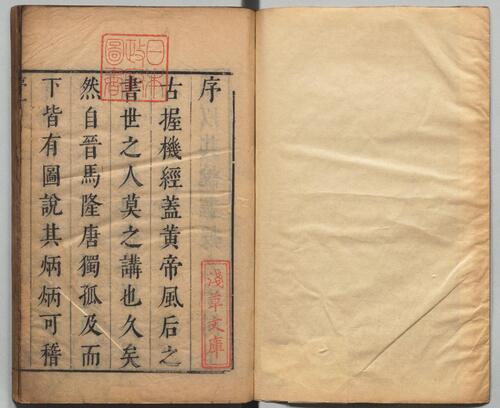 序
古握機經蓋黃帝風后之
書世之人莫之講也久矣
然自晉馬隆唐獨孤及而
下皆有圖說其炳炳可稽
日本
政府
圖書
淺草文庫